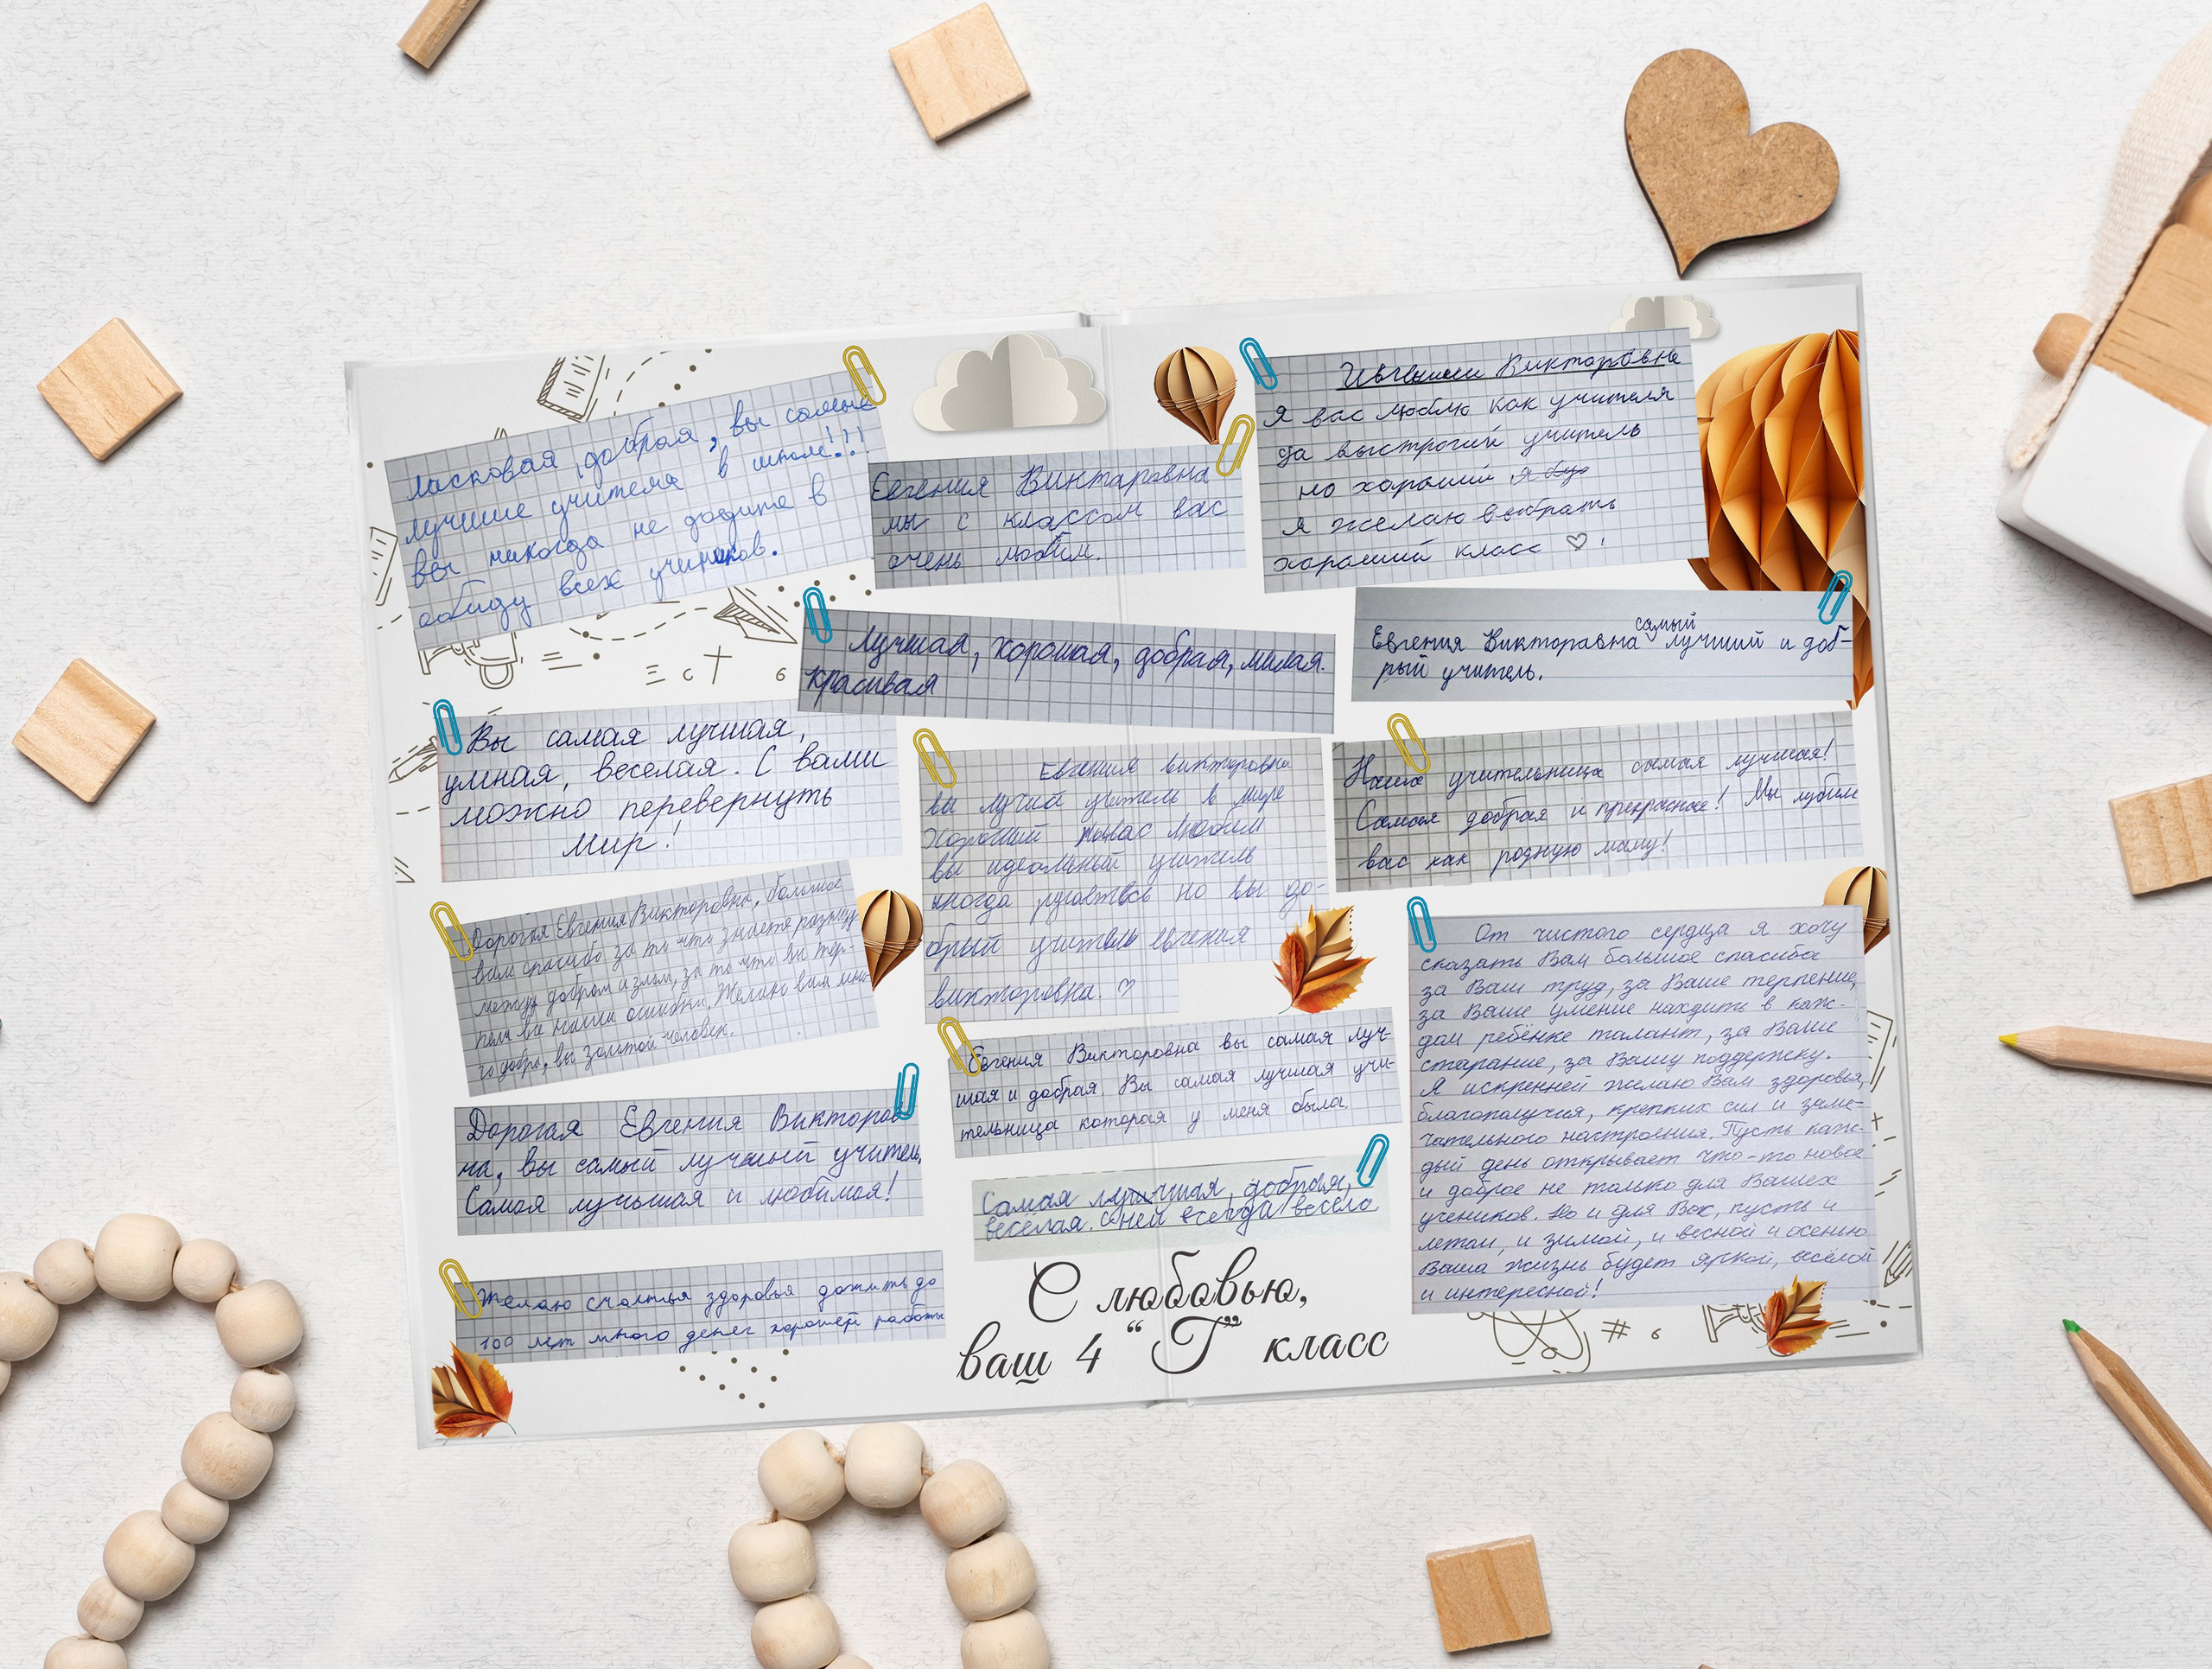 Ласковая, добрая, вы самые
лучшие учителя в школе!!!
вы никогда не дадите в
обиду всех учиников.
Евгения Виктаровна
мы с классом вас
очень любим.
Ивгении Викторовне
Я вас люблю как учителя
да выстрогий учитель
но хароший я буо
я желаю выбрать
хароший класс ♡!
Лучшая, хорошая, добрая, милая.
красивая
самый
Евгения Викторавна лучший и доб-
рый учитель.
Вы самая лучшая,
умная, веселая. С вами
можно перевернуть
мир!
Евгения викторовна
вы лучий учитель в мире
Хороший мывас любем
вы идеальный учитель
иногда ругаетесь но вы до-
брый учитель евгения
викторовна. ♡
Наша учительница самая лучшая!
Самая добрая и прекрасная! Мы любим
вас как родную маму!
Дорогая Евгения Викторовна, большое
вам спасибо за то что знаете разницу
между добром и злом, за то что вы тер-
пели на наши ошибки. Желаю вам мно-
го добра, вы золотой человек.
От чистого сердца я хочу
сказать Вам большое спасибо
за Ваш труд, за Ваше терпение,
за Ваше умение находить в каж-
дом ребёнке талант, за Ваше
старание, за Вашу поддержку.
Я искренней желаю Вам здоровья,
благополучия, крепких сил и заме-
чательного настроения. Пусть каж-
дый день открывает что-то новое
и доброе не только для Ваших
учеников. Но и для Вас, пусть и
летом, и зимой, и весной и осенью
Ваша жизнь будет яркой, весёлой
и интересной!
Евгения Викторовна вы самая луч-
шая и добрая. Вы самая лучшая учи-
тельница которая у меня была.
Дорогая Евгения Викторов-
на, вы самый лучший учитель,
Самая лучьшая и любимая!
Самая лучшая, добрая,
весёлая. С ней всегда весело
Желаю счастья здоровья дожить до
100 лет много денег хорошей работы
С любовью,
ваш 4 “Г” класс